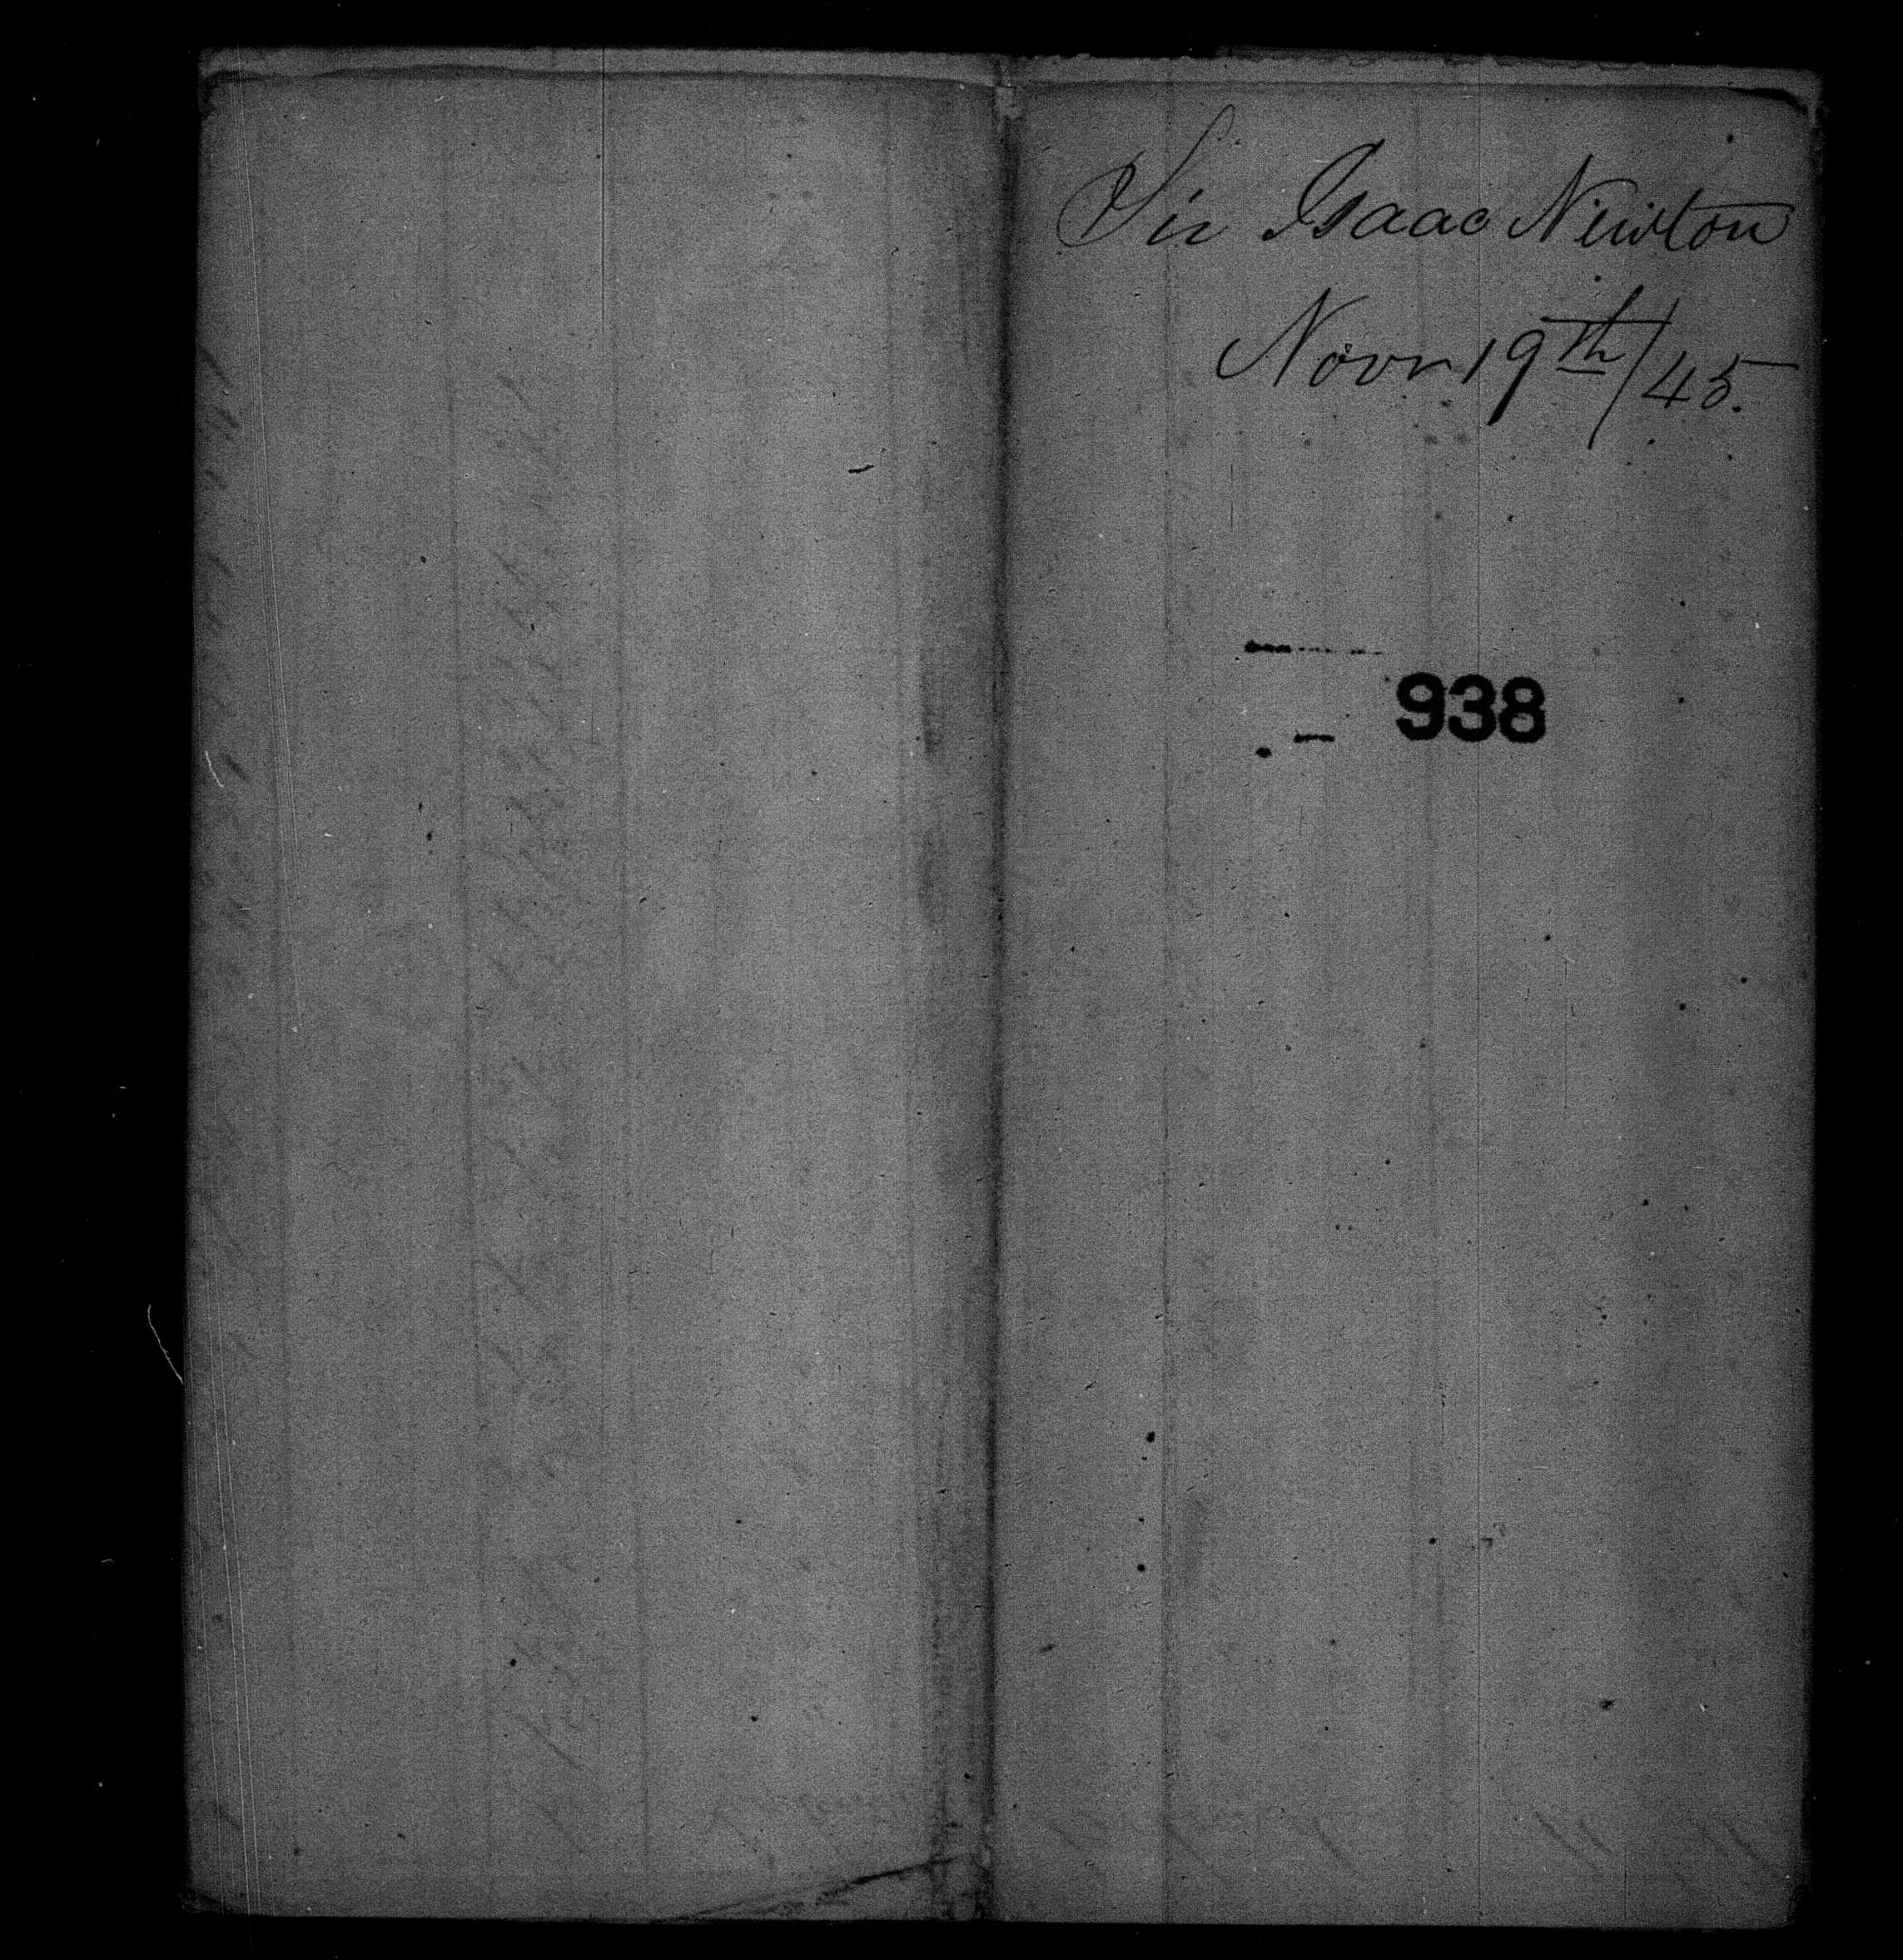 Sir Isaac Newton
Novr 19th/45.
938